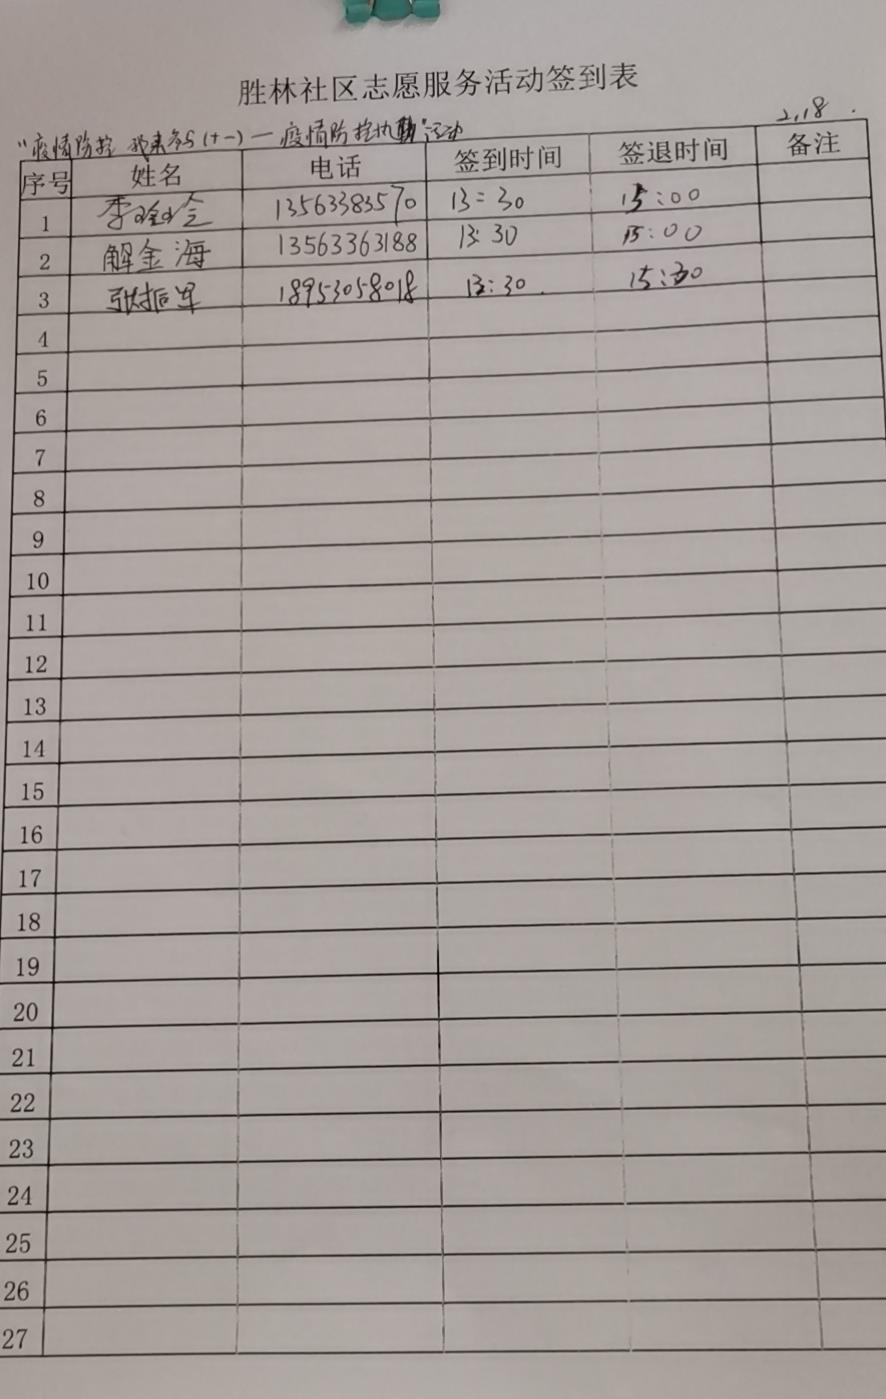 胜林社区志愿服务活动签到表
2.18.
"疫情防控 我来参与(十一)—疫情防控执勤"活动
序号 姓名 电话 签到时间 签退时间 备注
1 李玲玲 13563383570 13:30 15:00
2 解金海 13563363188 13:30 15:00
3 张振军 18953058018 13:30 15:30
4
5
6
7
8
9
10
11
12
13
14
15
16
17
18
19
20
21
22
23
24
25
26
27